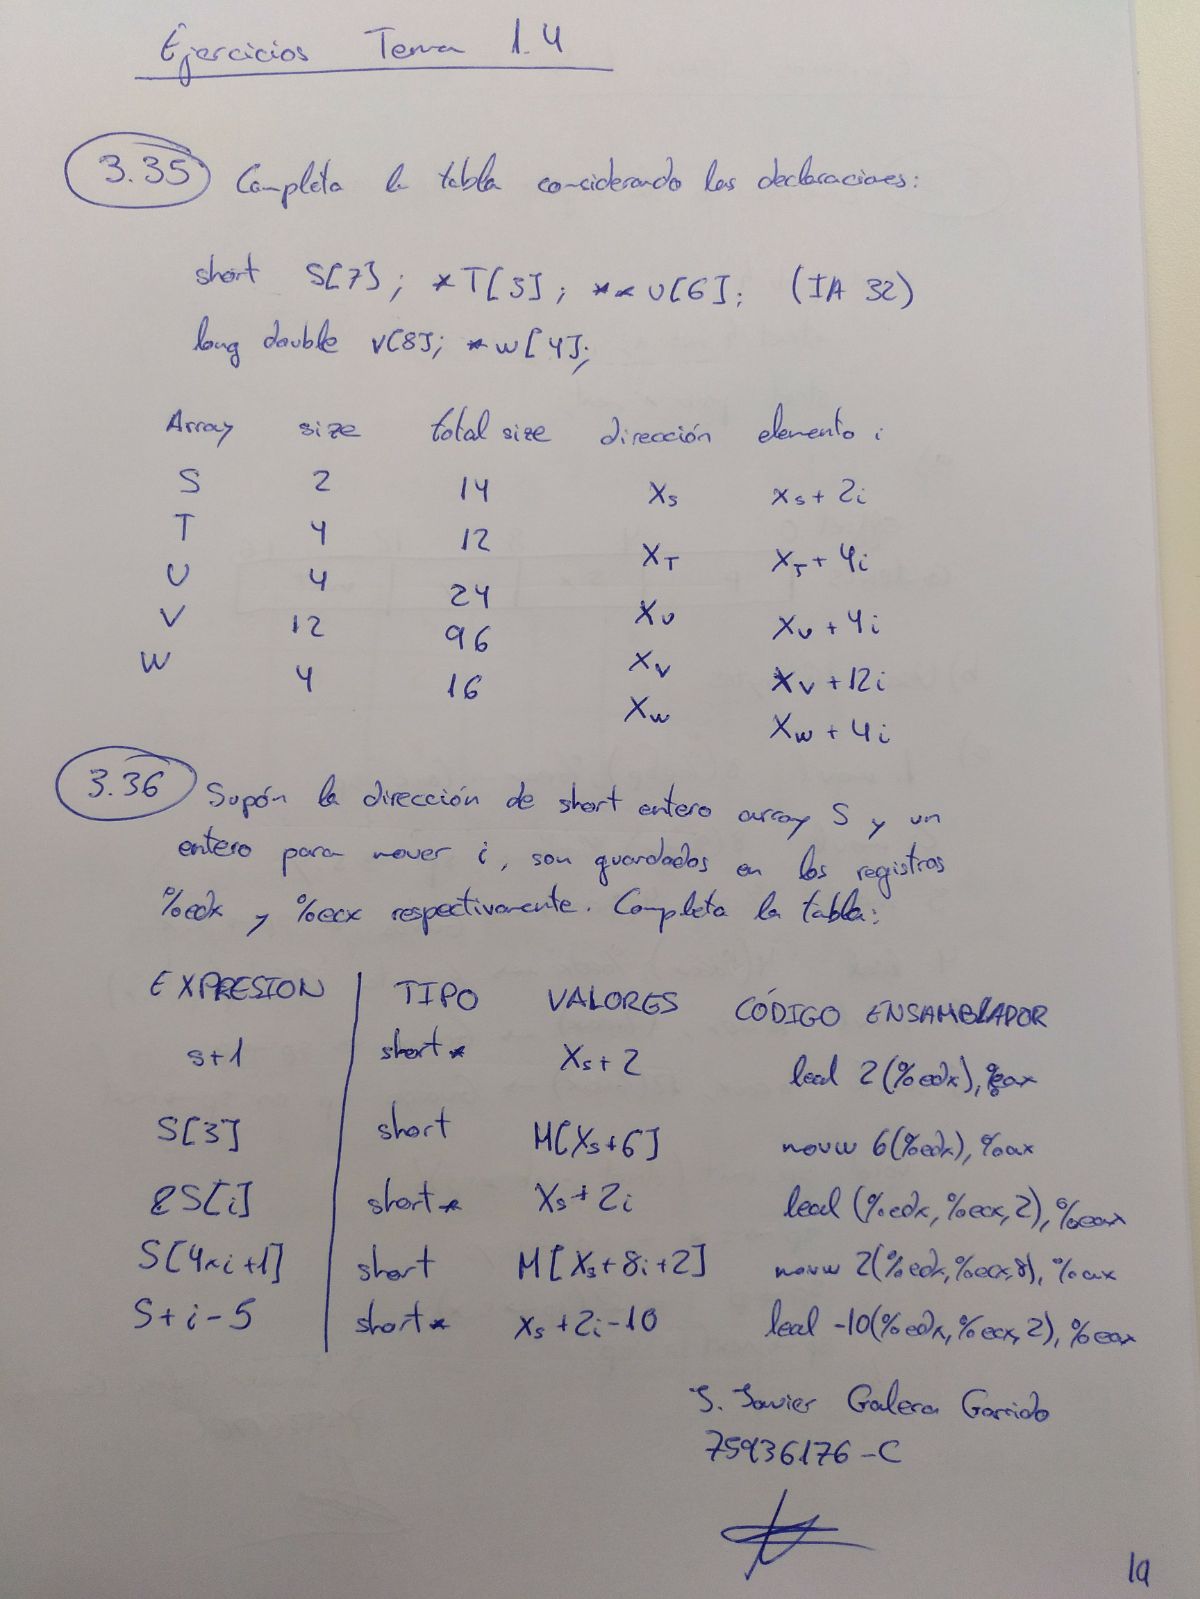 Ejercicios Tema 1.4
3.35 Completa la tabla considerando las declaraciones:
short S[7]; *T[3]; **U[6]; (IA 32)
long double V[8]; *W[4];
Array size total size dirección elemento i
S 2 14 Xs Xs + 2i
T 4 12 XT XT + 4i
U 4 24 XU XU + 4i
V 12 96 XV XV + 12i
W 4 16 XW XW + 4i
3.36 Supón la dirección de short entero array S y un
entero para mover i, son guardados en los registros
%edx y %ecx respectivamente. Completa la tabla:
EXPRESION TIPO VALORES CÓDIGO ENSAMBLADOR
S+1 short* Xs + 2 leal 2(%edx), %eax
S[3] short M[Xs+6] movw 6(%edx), %ax
&S[i] short* Xs + 2i leal (%edx, %ecx, 2), %eax
S[4*i+1] short M[Xs+8i+2] movw 2(%edx, %ecx, 8), %ax
S+i-5 short* Xs+2i-10 leal -10(%edx, %ecx, 2), %eax
J. Javier Galera Garrido
75936176-C
19